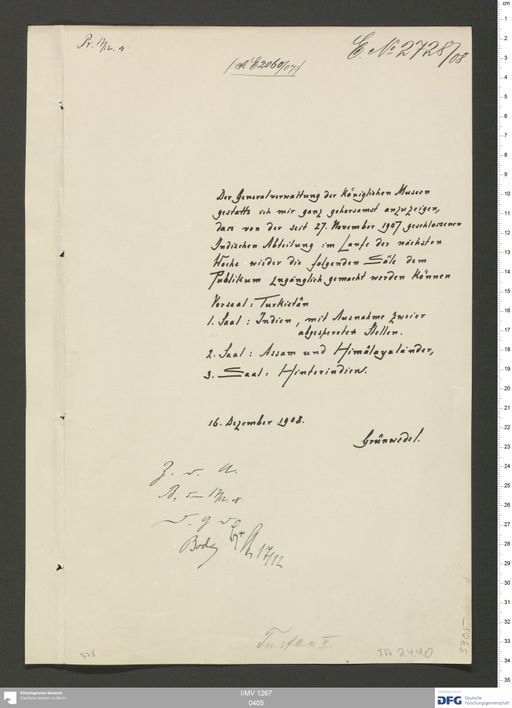 Pr. 17/12. 08.
E. No 2728/08
(ad E 2060/07)
Der Generalverwaltung der Königlichen Museen
gestatte ich mir ganz gehorsamst anzuzeigen,
dass von der seit 27. November 1907 geschlossenen
Indischen Abteilung im Laufe der nächsten
Woche wieder die folgenden Säle dem
Publikum zugänglich gemacht werden können
Vorsaal: Turkistân
1. Saal: Indien, mit Ausnahme zweier
abgesperrter Stellen.
2. Saal: Assam und Himâlayaländer,
3. Saal: Hinterindien.
16. Dezember 1908.
Grünwedel.
Z. d. A.
17/12
Turfan II
TA 2440
3305
328
Ethnologisches Museum
Staatliche Museen zu Berlin
I/MV 1267
0405
Gefördert durch
DFG Deutsche
Forschungsgemeinschaft
cm
1
2
3
4
5
6
7
8
9
10
11
12
13
14
15
16
17
18
19
20
21
22
23
24
25
26
27
28
29
30
31
32
33
34
35